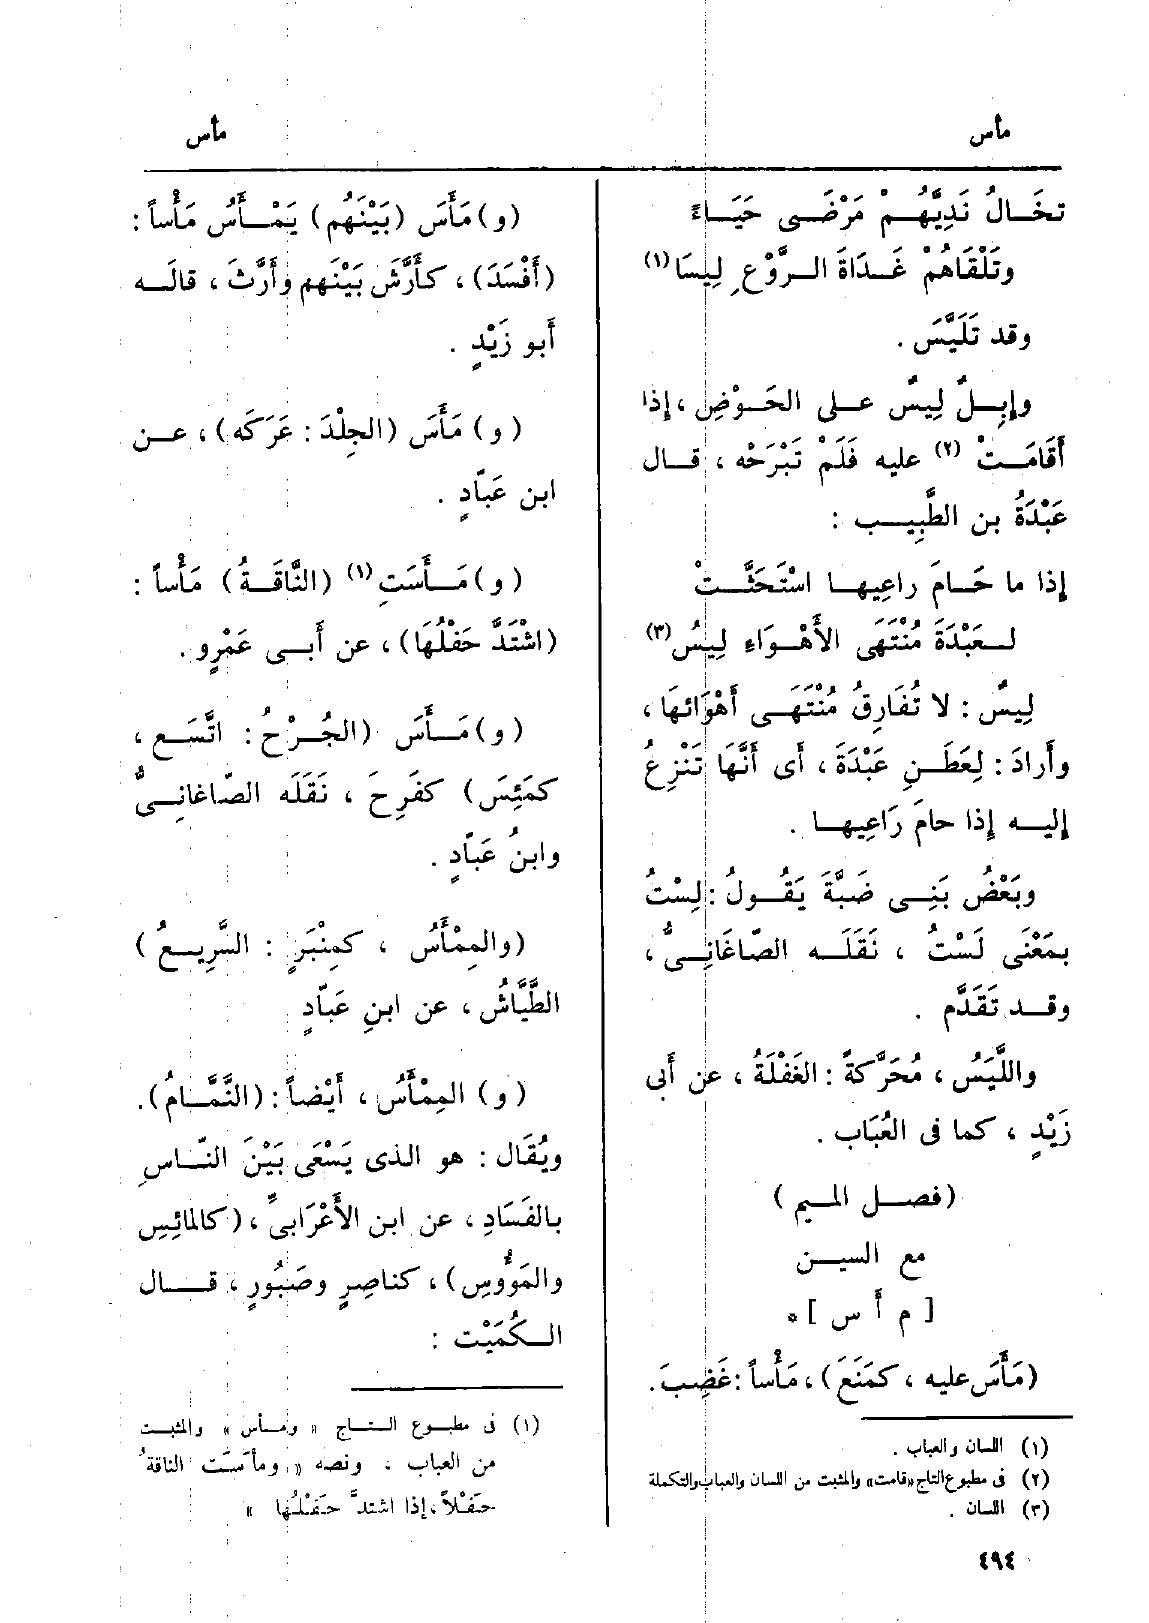 مأس
مأس
تخَالُ نَدِيَّهُمْ مَرْضَى حَيَاءً
وتَلْقَاهُمْ غَدَاةَ الرَّوْعِ لِيسَا (١)
وقد تَلَيَّسَ .
وإبِلٌ لِيسٌ على الحَوْضِ ، إذا
أَقَامَتْ (٢) عليه فَلَمْ تَبْرَحْه ، قال
عَبْدَةُ بن الطَّبِيب :
إذا ما حَامَ راعِيها اسْتَحَثَّتْ
لعَبْدَةَ مُنْتَهَى الأَهْوَاءِ لِيسُ (٣)
لِيسٌ : لا تُفَارِقُ مُنْتَهَى أَهْوَائِهَا ،
وأَرادَ : لِعَطَنِ عَبْدَةَ ، أى أَنَّهَا تَنْزِعُ
إليه إذا حامَ رَاعِيها .
وبَعْضُ بَنِى ضَبَّةَ يَقُولُ : لِسْتُ
بمَعْنَى لَسْتُ ، نَقَلَه الصّاغَانِىُّ ،
وقد تَقَدَّم .
واللَّيَسُ ، مُحَرَّكةً : الغَفْلَةُ ، عن أَبى
زَيْدٍ ، كما فى العُبَاب .
(فصل الميم )
مع السين
[ م أ س ] *
(مَأَسَ عليه ، كمَنَعَ) ، مَأْساً : غَضِبَ .
(١) اللسان والعباب .
(٢) فى مطبوع التاج «قامت» والمثبت من اللسان والعباب والتكملة
(٣) اللسان .
(و) مَأَسَ (بَيْنَهُم) يَمْأَسُ مَأْساً :
(أَفْسَدَ) ، كأَرَّشَ بَيْنَهم وأَرَّثَ ، قالَه
أَبو زَيْدٍ .
(و) مَأَسَ (الجِلْدَ : عَرَكَه) ، عن
ابن عَبّادٍ .
(و) مَأَسَتِ (١) (النَّاقَةُ) مَأْساً :
(اشْتَدَّ حَفْلُهَا) ، عن أَبى عَمْرٍو .
(و) مَأَسَ (الجُرْحُ : اتَّسَع ،
كمَئِسَ) كفَرِحَ ، نَقَلَه الصّاغانِىُّ
وابنُ عَبّادٍ .
(والمِمْأَسُ ، كمِنْبَرٍ : السَّرِيعُ )
الطَّيَّاشُ ، عن ابنِ عَبّادٍ
(و) المِمْأَسُ ، أَيْضاً : (النَّمَّامُ) .
ويُقَال : هو الذى يَسْعَى بَيْنَ النّاسِ
بالفَسَادِ ، عن ابن الأَعْرَابىِّ ، (كالمائِسِ
والمَؤُوسِ) ، كناصِرٍ وصَبُورٍ ، قال
الكُمَيْت :
(١) فى مطبوع التاج « ومأس » والمثبت
من العباب . ونصه « ومأسَت الناقةُ
حَفْلاً ، إذا اشتدَّ حَفْلُها »
٤٩٤